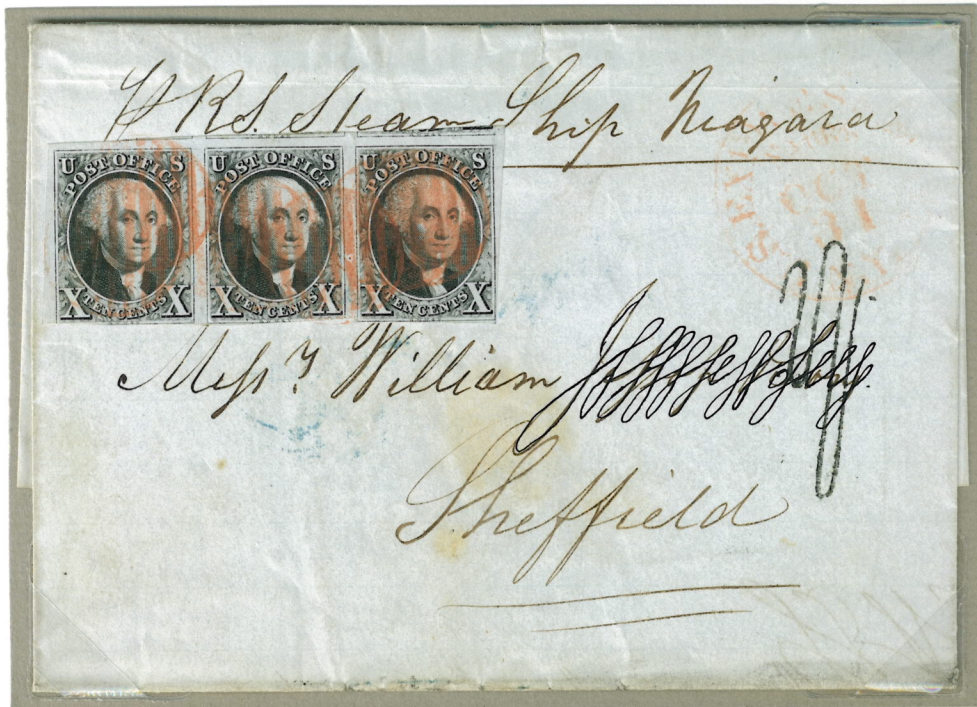 p RS. Steam Ship Niagara
U POST OFFICE S
X TEN CENTS X
U POST OFFICE S
X TEN CENTS X
U POST OFFICE S
X TEN CENTS X
Messrs William
Sheffield